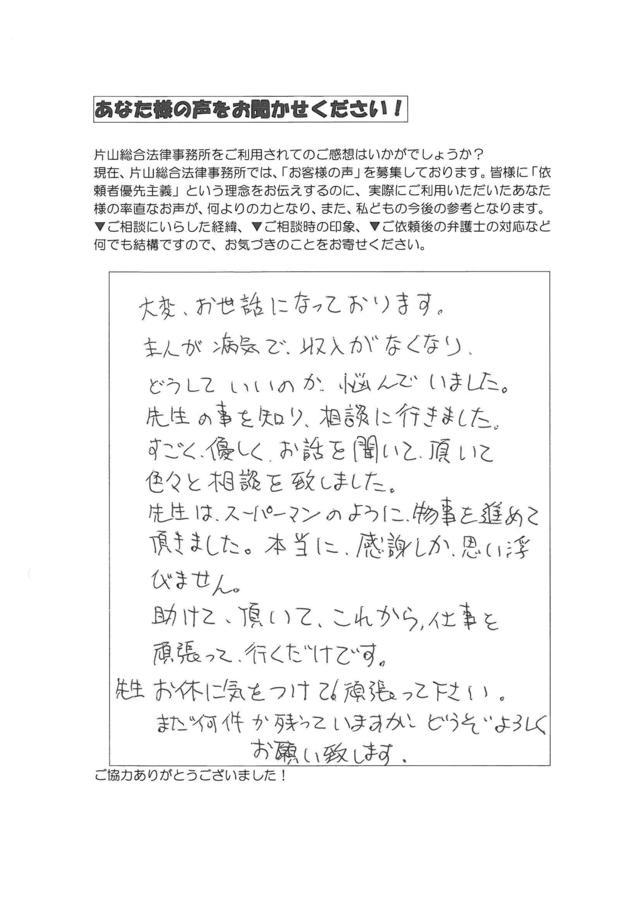 あなた様の声をお聞かせください！
片山総合法律事務所をご利用されてのご感想はいかがでしょうか？
現在、片山総合法律事務所では、「お客様の声」を募集しております。皆様に「依
頼者優先主義」という理念をお伝えするのに、実際にご利用いただいたあなた
様の率直なお声が、何よりの力となり、また、私どもの今後の参考となります。
▼ご相談にいらした経緯、▼ご相談時の印象、▼ご依頼後の弁護士の対応など
何でも結構ですので、お気づきのことをお寄せください。
大変、お世話になっております。
主人が病気で、収入がなくなり、
どうしていいのか、悩んでいました。
先生の事を知り、相談に行きました。
すごく、優しく、お話を聞いて、頂いて
色々と相談を致しました。
先生は、スーパーマンのように、物事を進めて
頂きました。本当に、感謝しか、思い浮
びません。
助けて、頂いて、これから、仕事を
頑張って、行くだけです。
先生 お体に気をつけて、頑張って下さい。
まだ何件か残っていますが、どうぞよろしく
お願い致します。
ご協力ありがとうございました！